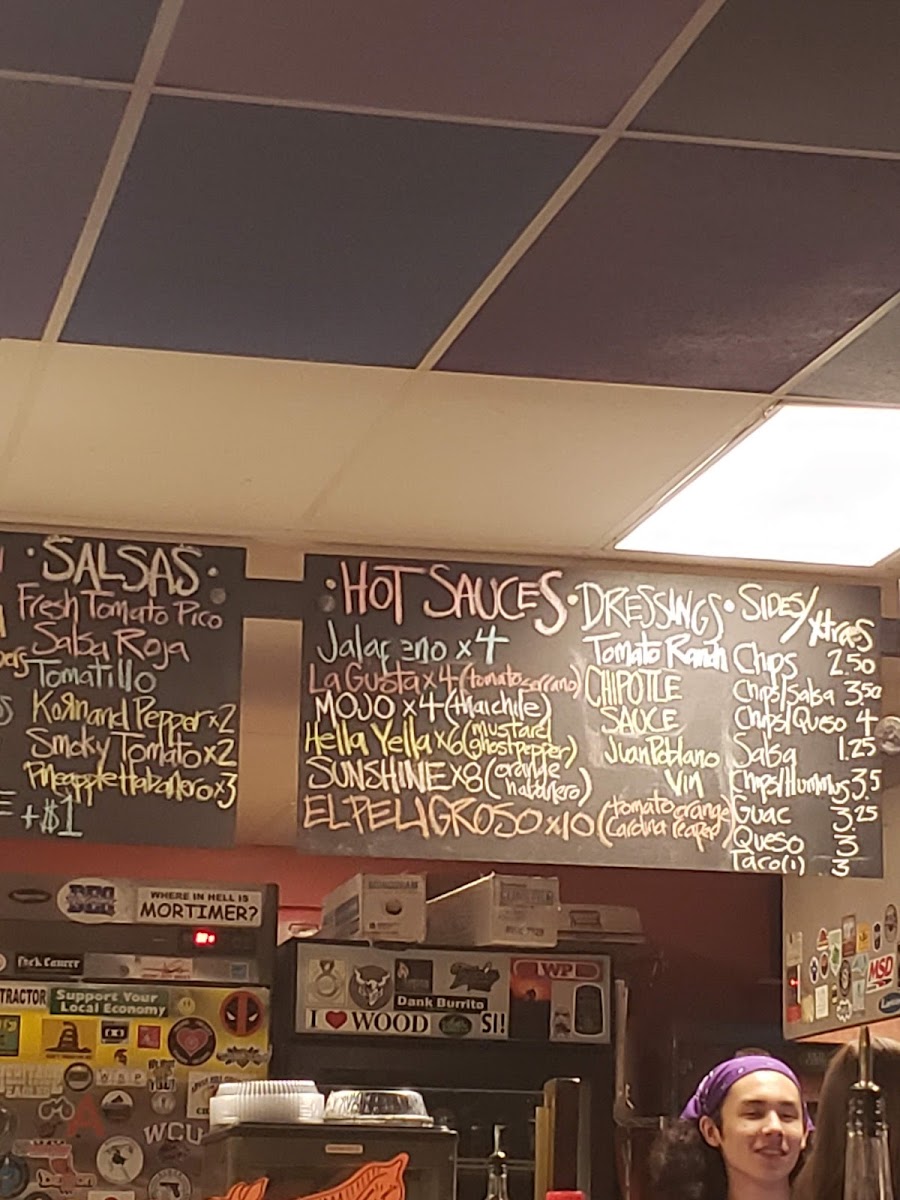 · SALSAS ·
Fresh Tomato Pico
Salsa Roja
Tomatillo
Kornand Pepper x2
Smoky Tomato x2
Pineapple Habanero x3
+$1
· HOT SAUCES ·
Jalapeno x 4
La Gusta x 4 (tomato serrano)
MOJO x 4 (thai chile)
Hella Yella x 6 (mustard ghost pepper)
SUNSHINE x 8 (orange habanero)
EL PELIGROSO x 10 (tomato orange Carolina reaper)
DRESSINGS ·
Tomato Ranch
CHIPOTLE
SAUCE
Juan Poblano
Vin
SIDES/Xtras
Chips 2.50
Chips/Salsa 3.50
Chips/Queso 4
Salsa 1.25
Chips/Hummus 3.5
Guac 3.25
Queso 3
Taco(1) 3
WHERE IN HELL IS
MORTIMER?
TRACTOR
Support Your
Local Economy
WCU
WP
Dank Burrito
I ♥ WOOD SI!
MSD